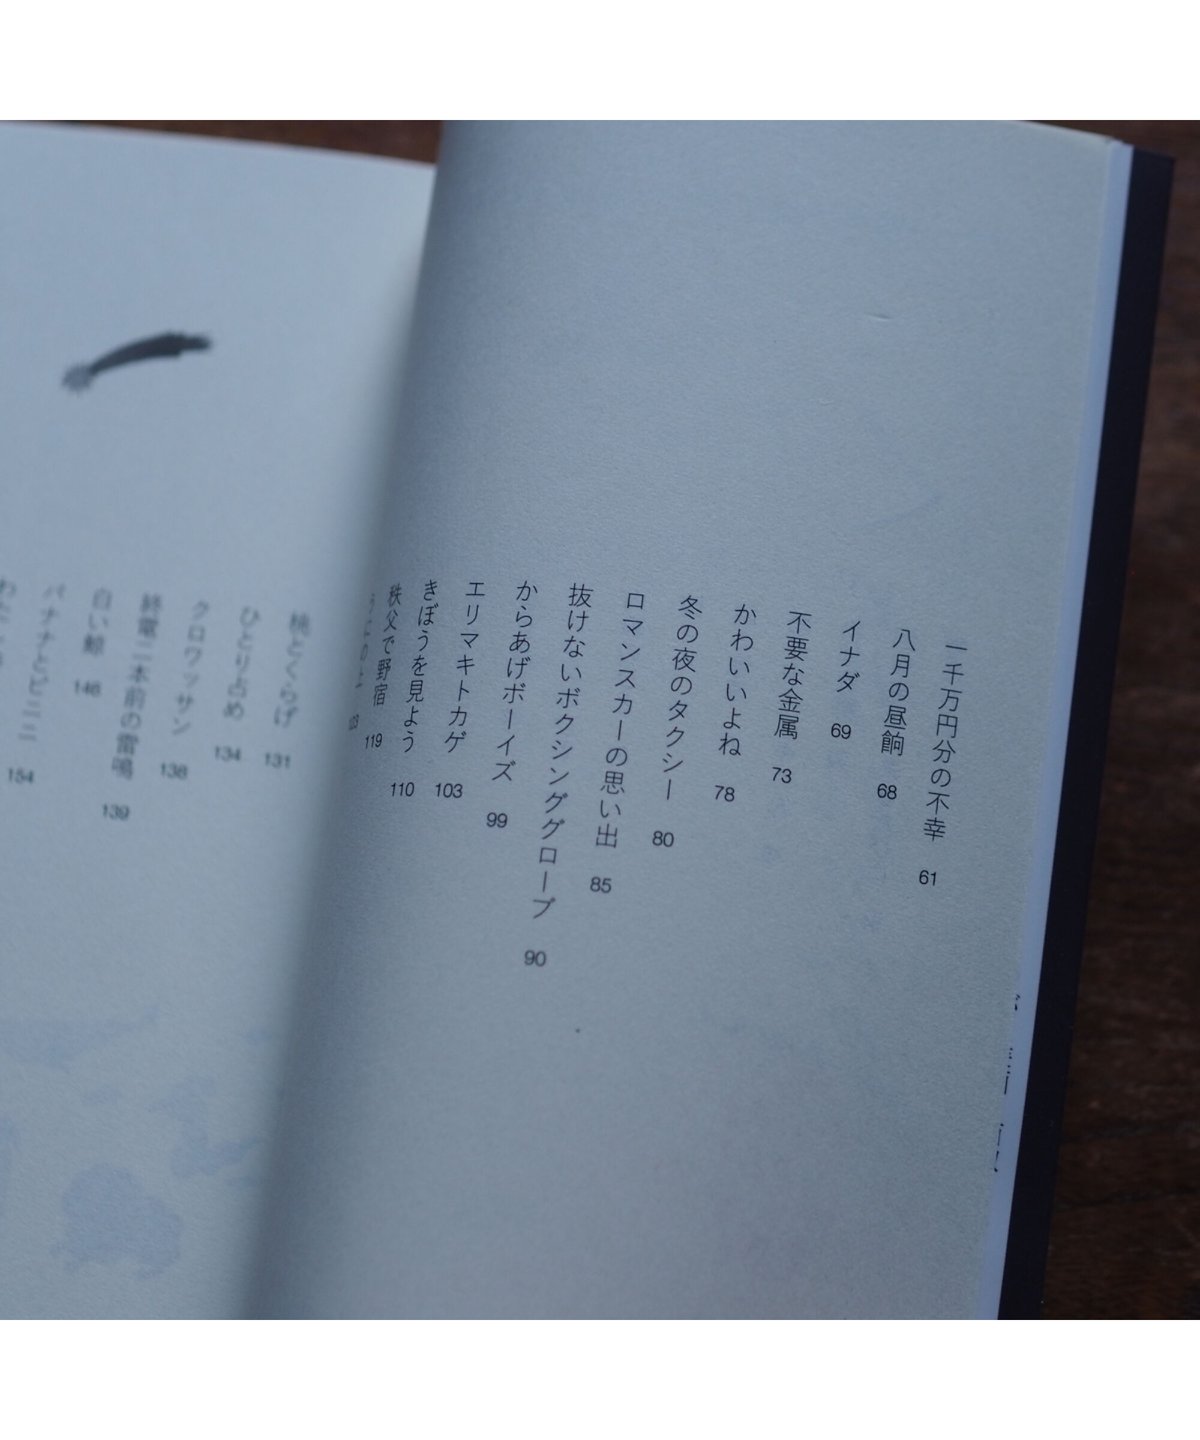 一千万円分の不幸 61
八月の昼餉 68
イナダ 69
不要な金属 73
かわいいよね 78
冬の夜のタクシー 80
ロマンスカーの思い出 85
抜けないボクシンググローブ 90
からあげボーイズ 99
エリマキトカゲ 103
きぼうを見よう 110
秩父で野宿 119
桃とくらげ 131
ひとり占め 134
クロワッサン 138
終電二本前の雷鳴 139
白い鯨 146
バナナとビニニ 154